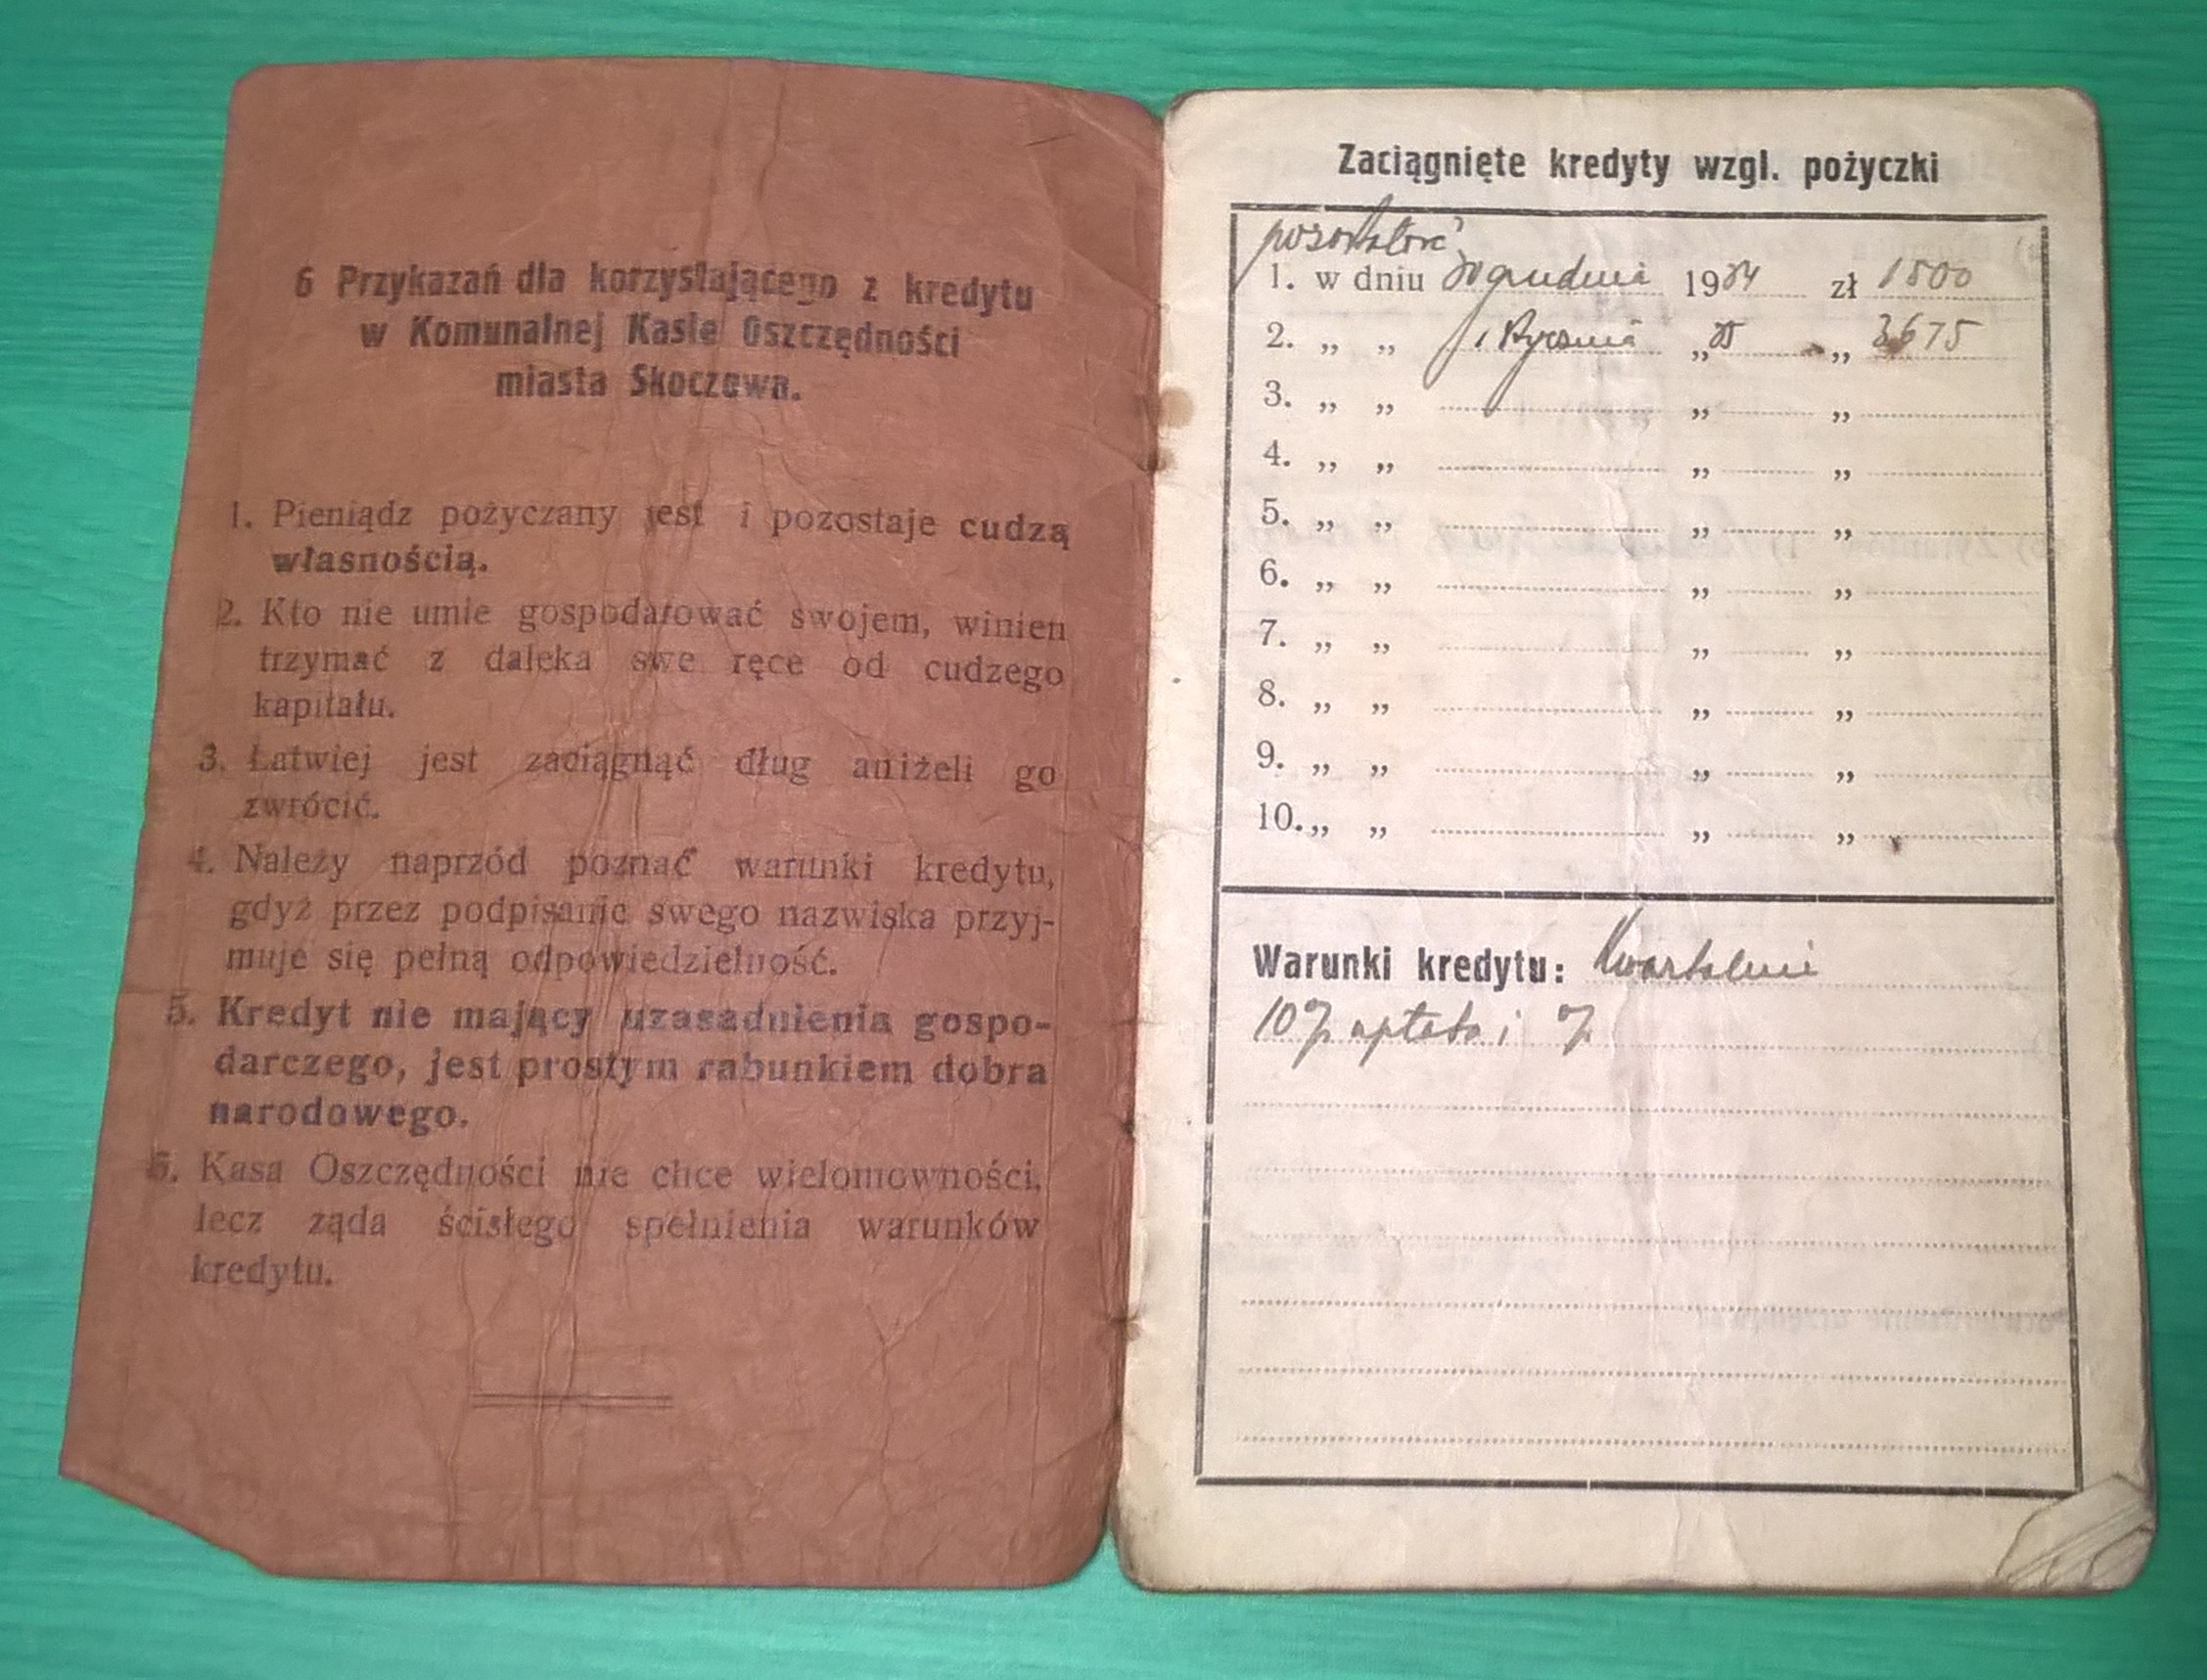 6 Przykazań dla korzystającego z kredytu
w Komunalnej Kasie Oszczędności
miasta Skoczowa.
1. Pieniądz pożyczany jest i pozostaje cudzą
własnością.
2. Kto nie umie gospodarować swojem, winien
trzymać z daleka swe ręce od cudzego
kapitału.
3. Łatwiej jest zaciągnąć dług aniżeli go
zwrócić.
4. Należy naprzód poznać warunki kredytu,
gdyż przez podpisanie swego nazwiska przyj-
muje się pełną odpowiedzielność.
5. Kredyt nie mający uzasadnienia gospo-
darczego, jest prostym rabunkiem dobra
narodowego.
6. Kasa Oszczędności nie chce wielomowności,
lecz ząda ścisłego spełnienia warunków
kredytu.
Zaciągnięte kredyty wzgl. pożyczki
pozostałość
1. w dniu grudnia 1934 zł 1500
2. „ „ Stycznia „ 35 „ 3675
3. „ „ „ „
4. „ „ „ „
5. „ „ „ „
6. „ „ „ „
7. „ „ „ „
8. „ „ „ „
9. „ „ „ „
10. „ „ „ „
Warunki kredytu: Kwartalnie
10% upłata i %